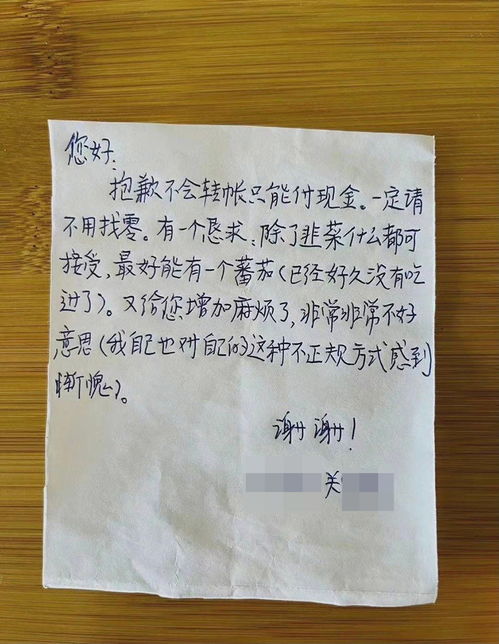 您好:
抱歉不会转帐只能付现金。一定请
不用找零。有一个恳求,除了韭菜什么都可
接受,最好能有一个蕃茄(已经好久没有吃
过了)。又给您增加麻烦了,非常非常不好
意思(我自己也对自己的这种不正规方式感到
惭愧)。
谢谢!
关